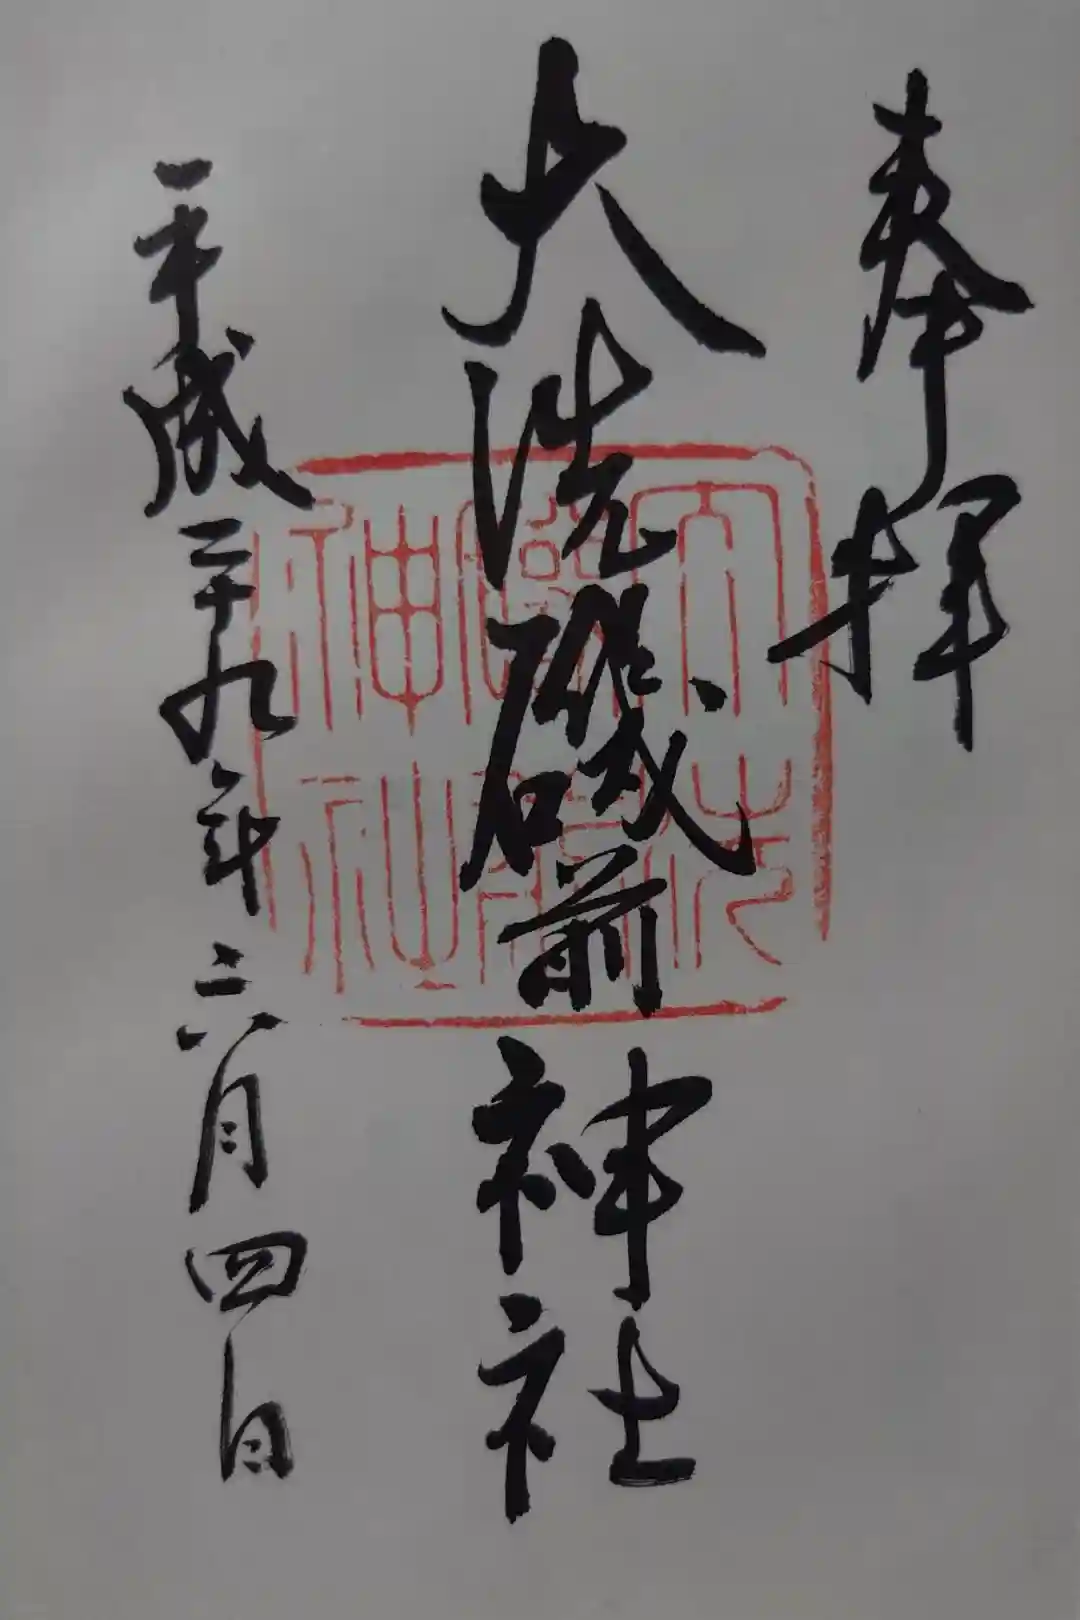 奉拝
大洗磯前神社
平成二十九年六月四日
大洗
磯前
神社